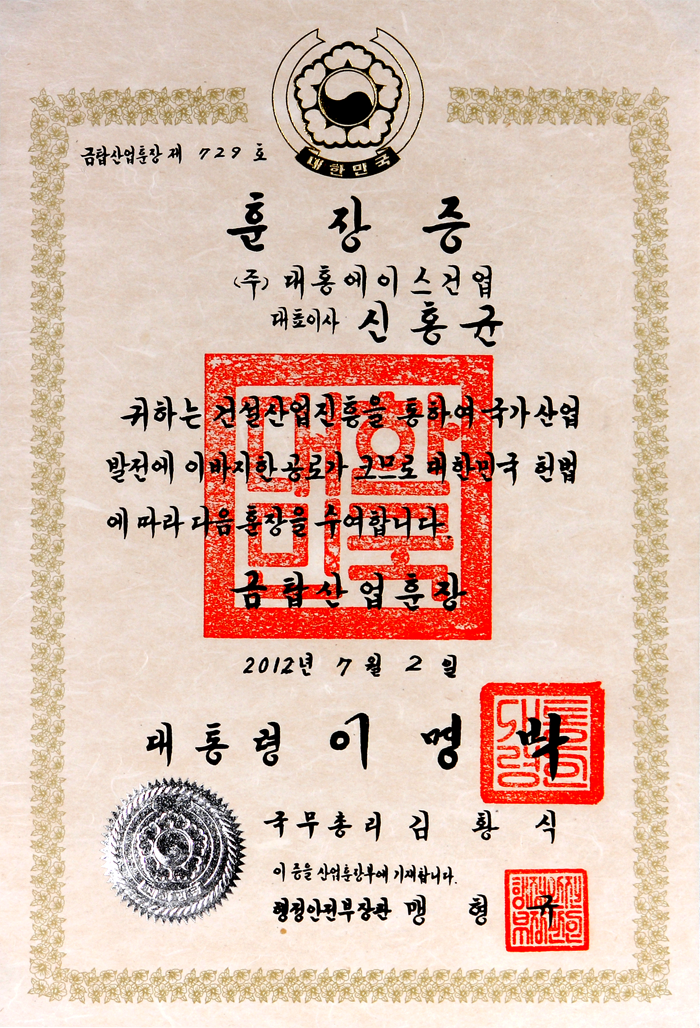 대한민국
금탑산업훈장 제 729 호
훈장증
(주) 대홍에이스건업
대표이사 신홍균
귀하는 건설산업진흥을 통하여 국가산업
발전에 이바지한 공로가 크므로 대한민국 헌법
에 따라 다음 훈장을 수여합니다.
금탑산업훈장
2012년 7월 2일
대통령 이명박
국무총리 김황식
이 증을 산업훈장부에 기재합니다.
행정안전부장관 맹형규